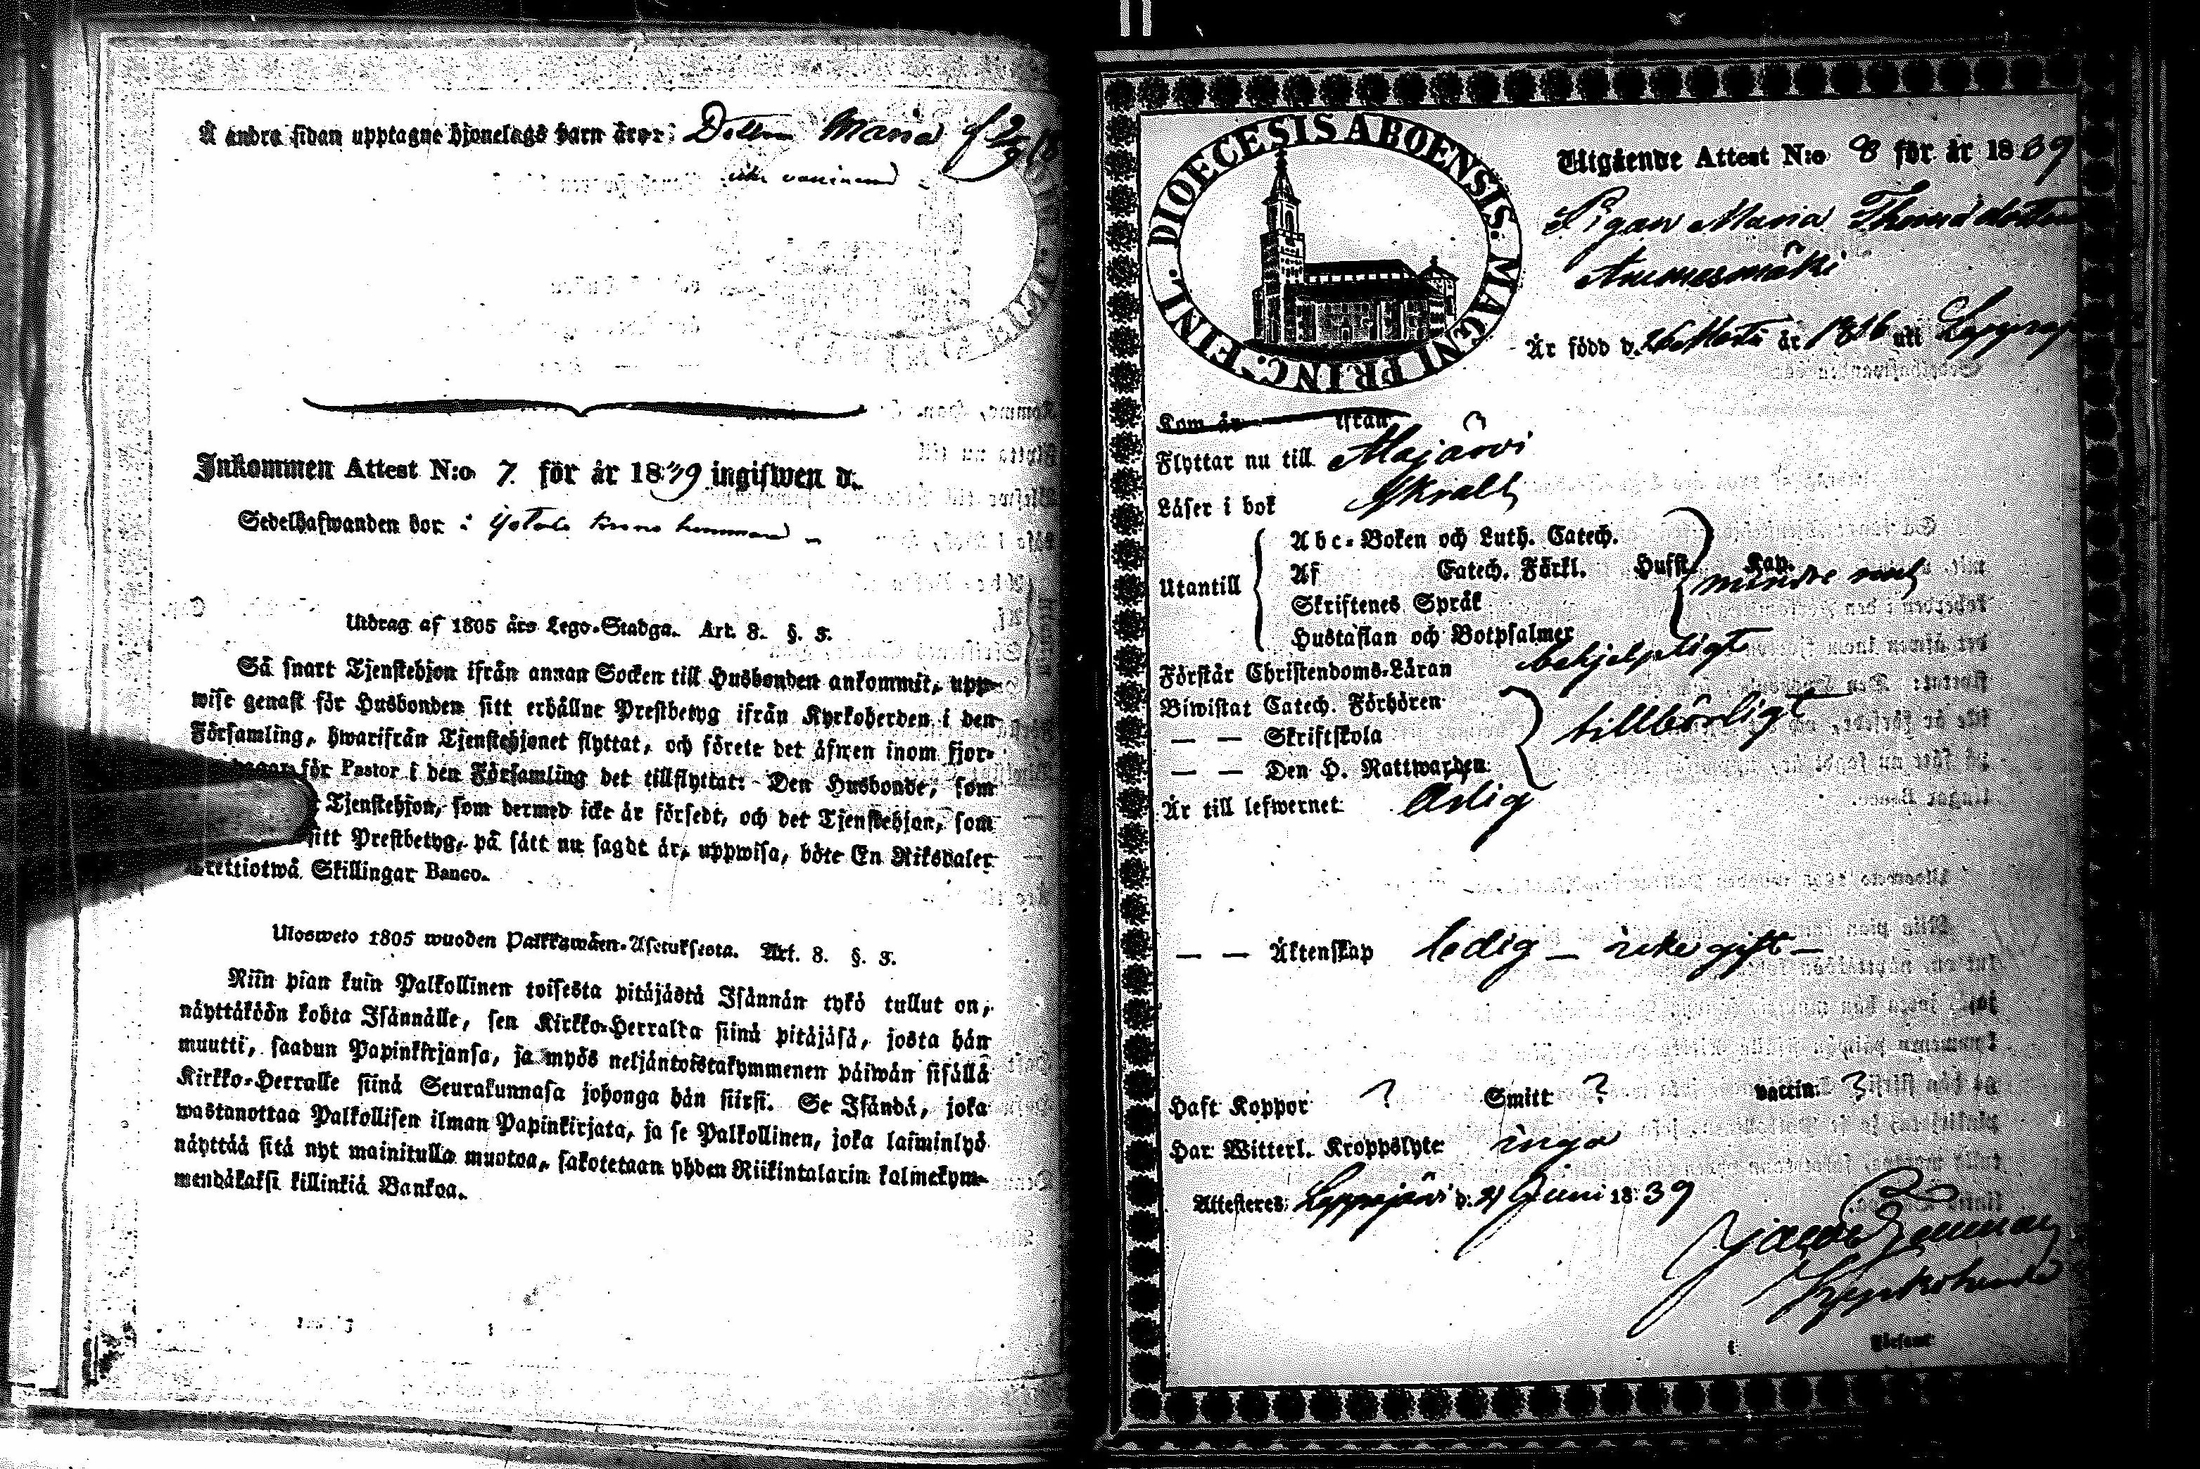 Å andra sidan upptagne hjonelags barn äro: Dottern Maria f 2/9 18
icke vaccinerad
Inkommen Attest N:o 7 för år 1839 ingifwen d.
Sedelhafwanden bor i
Utdrag af 1805 års Lego-Stadga. Art. 8. §. 3.
Så snart Tjenstehjon ifrån annan Socken till Husbonden ankommit, upp-
wise genast för Husbonden sitt erhållne Prestbetyg ifrån Kyrkoherden i den
Församling, hwarifrån Tjenstehjonet flyttat, och förete det äfwen inom fjor-
dagar för Pastor i den Församling det tillflyttat: Den Husbonde, som
Tjenstehjon, som dermed icke är försedt, och det Tjenstehjon, som
sitt Prestbetyg, på sätt nu sagdt är, uppwisa, böte En Riksdaler
Trettiotwå Skillingar Banco.
Ulosweto 1805 wuoden Palkkawäen-Asetuksesta. Art. 8. §. 3.
Niin pian kuin Palkollinen toisesta pitäjästä Isännän tykö tullut on,
näyttäköön kohta Isännälle, sen Kirkko-Herralta siinä pitäjäsä, josta hän
muutti, saadun Papinkirjansa, ja myös neljäntoistakymmenen päiwän sisällä
Kirkko-Herralle siinä Seurakunnasa johonga hän siirsi. Se Isändä, joka
wastanottaa Palkollisen ilman Papinkirjata, ja se Palkollinen, joka laiminlyö
näyttää sitä nyt mainitulla muotoa, sakotetaan yhden Riikintalarin kolmekym-
mendäkaksi killinkiä Bankoa.
DIOECESIS ABOENSIS. MAGNI PRINC. FINL.
Utgående Attest N:o 8 för år 1839
Pigan Maria Thomasdotter
Är född d. 26 år 1816 uti
Kom år ifrån
Flyttar nu till Alajärvi
Läser i bok
Utantill
Abc-Boken och Luth. Catech.
Af Catech. Förkl. Husft. Kap.
mindreväl
Skriftenes Språk
Hustaflan och Botpsalmer
Förstår Christendoms-Läran behjelpligt
Biwistat Catech. Förhören
— — Skriftskola tillbörligt
— — Den H. Nattwarden
Är till lefwernet Ärlig
— — Äktenskap ledig — icke gift —
Haft Koppor ? Smitt ? vaccin. ?
Har Witterl. Kroppslyte inga
Attesteres Lappajärvi d. 21 Juni 1839
Kyrkoherde